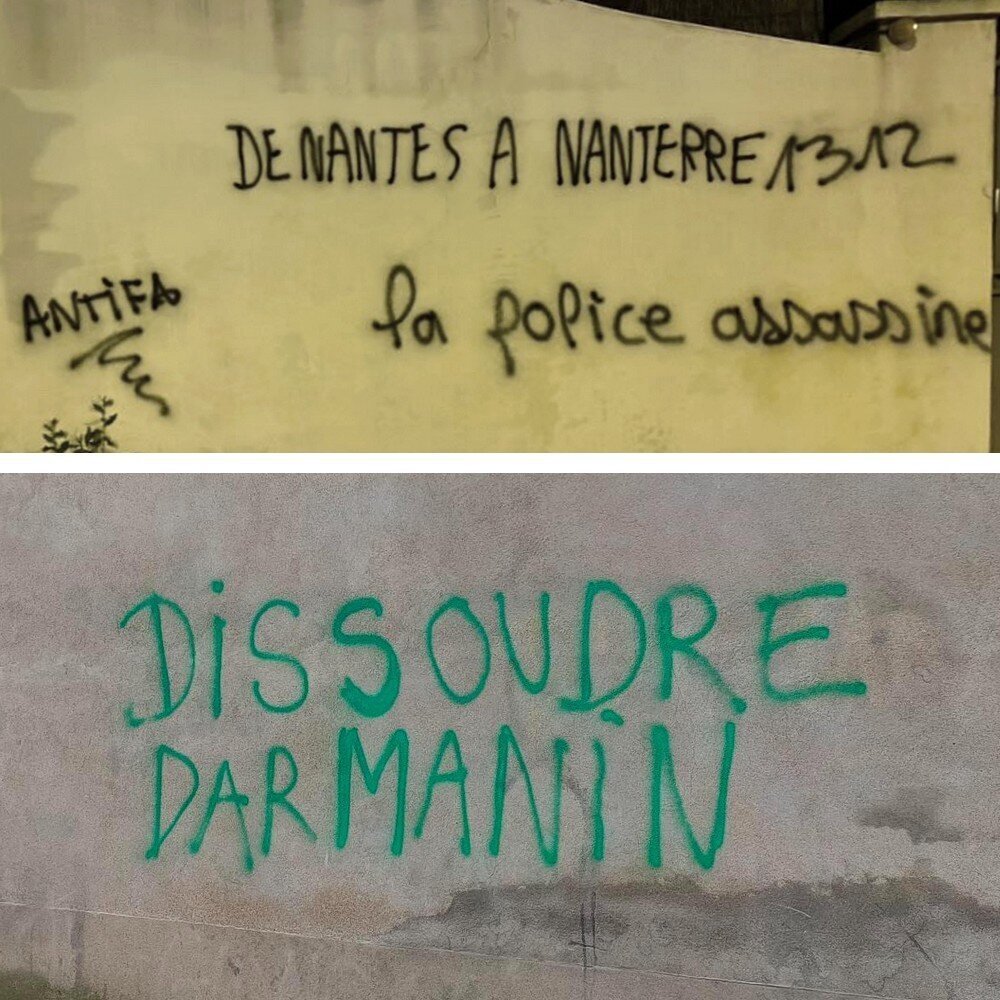 DE NANTES A NANTERRE 1312
ANTIFA
la police assassine
DiSSOUDRE
DARMANiN